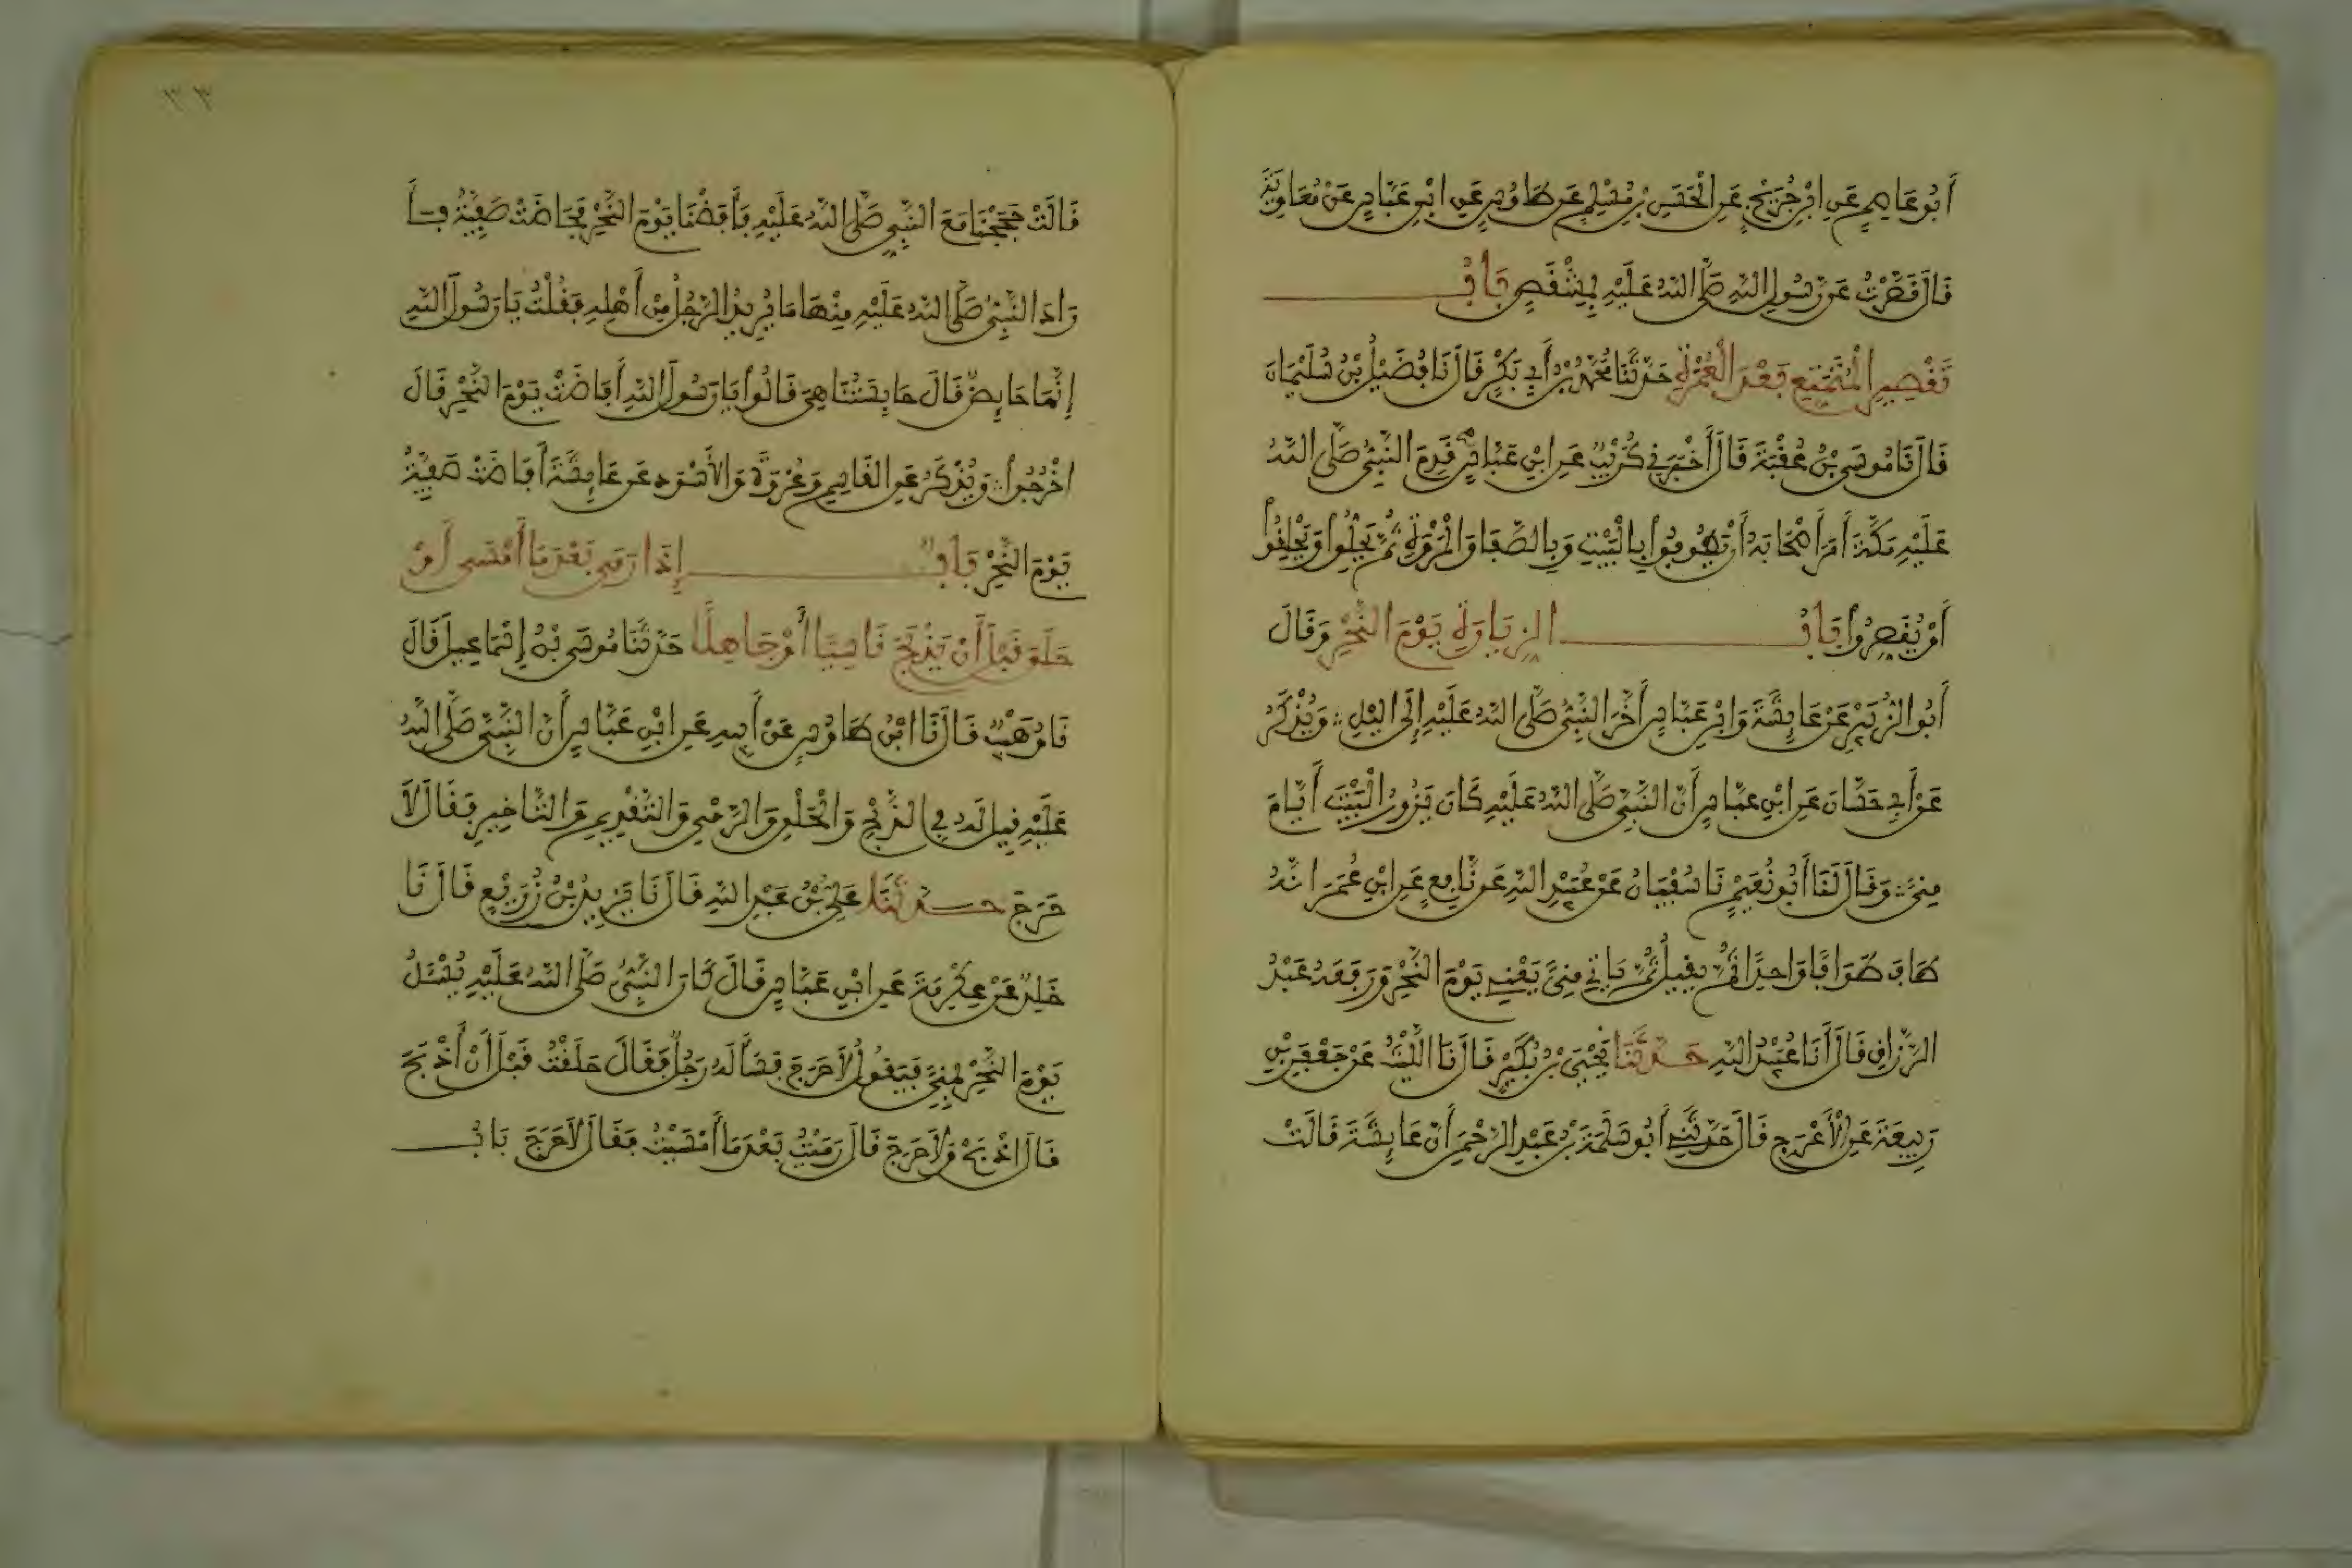 أَبُو عَاصِمٍ عَنِ ابْنِ جُرَيْجٍ عَنِ الْحَسَنِ بْنِ مُسْلِمٍ عَن طَاوُسٍ عَنِ ابْنِ عَبَّاسٍ عَنْ مُعَاوِيَةَ
قَالَ قَصَّرْتُ عَن رَّسُولِ اللَّهِ صَلَّى اللَّهُ عَلَيْهِ بِمِشْقَصٍ بَابُ
تَقْصِيرِ الْمُتَمَتِّعِ بَعْدَ الْعُمْرَةِ حَدَّثَنَا مُحَمَّدُ بْنُ أَبِي بَكْرٍ قَالَ نَا فُضَيْلُ بْنُ سُلَيْمَانَ
قَالَ نَا مُوسَى بْنُ عُقْبَةَ قَالَ أَخْبَرَنِي كُرَيْبٌ عَنِ ابْنِ عَبَّاسٍ قَدِمَ النَّبِيُّ صَلَّى اللَّهُ
عَلَيْهِ مَكَّةَ أَمَرَ أَصْحَابَهُ أَنْ يَطُوفُوا بِالْبَيْتِ وَبِالصَّفَا وَالْمَرْوَةِ ثُمَّ يَحِلُّوا وَيَحْلِقُوا
أَوْ يُقَصِّرُوا بَابُ الزِّيَارَةِ يَوْمَ النَّحْرِ وَقَالَ
أَبُو الزُّبَيْرِ عَنْ عَائِشَةَ وَابْنِ عَبَّاسٍ أَخَّرَ النَّبِيُّ صَلَّى اللَّهُ عَلَيْهِ إِلَى اللَّيْلِ ؞ وَيُذْكَرُ
عَنْ أَبِي حَسَّانَ عَنِ ابْنِ عَبَّاسٍ أَنَّ النَّبِيَّ صَلَّى اللَّهُ عَلَيْهِ كَانَ يَزُورُ الْبَيْتَ أَيَّامَ
مِنًى ؞ وَقَالَ لَنَا أَبُو نُعَيْمٍ نَا سُفْيَانُ عَنْ عُبَيْدِ اللَّهِ عَن نَّافِعٍ عَنِ ابْنِ عُمَرَ أَنَّهُ
طَافَ طَوَافًا وَاحِدًا ثُمَّ يَقِيلُ ثُمَّ يَأْتِي مِنًى يَعْنِي يَوْمَ النَّحْرِ وَرَفَعَهُ عَبْدُ
الرَّزَّاقِ قَالَ أَنَا عُبَيْدُ اللَّهِ حَدَّثَنَا يَحْيَى بْنُ بُكَيْرٍ قَالَ نَا اللَّيْثُ عَنْ جَعْفَرِ بْنِ
رَبِيعَةَ عَنِ الْأَعْرَجِ قَالَ حَدَّثَنِي أَبُو سَلَمَةَ بْنُ عَبْدِ الرَّحْمَنِ أَنَّ عَائِشَةَ قَالَتْ
٣٣
قَالَتْ حَجَجْنَا مَعَ النَّبِيِّ صَلَّى اللَّهُ عَلَيْهِ فَأَفَضْنَا يَوْمَ النَّحْرِ فَحَاضَتْ صَفِيَّةُ فَأَ
رَادَ النَّبِيُّ صَلَّى اللَّهُ عَلَيْهِ مِنْهَا مَا يُرِيدُ الرَّجُلُ مِنْ أَهْلِهِ فَقُلْتُ يَا رَسُولَ اللَّهِ
إِنَّهَا حَائِضٌ قَالَ حَابِسَتُنَا هِيَ قَالُوا يَا رَسُولَ اللَّهِ أَفَاضَتْ يَوْمَ النَّحْرِ قَالَ
اخْرُجُوا ؞ وَيُذْكَرُ عَنِ الْقَاسِمِ وَعُرْوَةَ وَالْأَسْوَدِ عَن عَائِشَةَ أَفَاضَتْ صَفِيَّةُ
يَوْمَ النَّحْرِ بَابٌ إِذَا رَمَى بَعْدَ مَا أَمْسَى أَوْ
حَلَقَ قَبْلَ أَنْ يَذْبَحَ نَاسِيًا أَوْ جَاهِلًا حَدَّثَنَا مُوسَى بْنُ إِسْمَاعِيلَ قَالَ
نَا وُهَيْبٌ قَالَ نَا ابْنُ طَاوُسٍ عَنْ أَبِيهِ عَنِ ابْنِ عَبَّاسٍ أَنَّ النَّبِيَّ صَلَّى اللَّهُ
عَلَيْهِ قِيلَ لَهُ فِي الذَّبْحِ وَالْحَلْقِ وَالرَّمْيِ وَالتَّقْدِيمِ وَالتَّأْخِيرِ فَقَالَ لَا
حَرَجَ حَدَّثَنَا عَلِيُّ بْنُ عَبْدِ اللَّهِ قَالَ نَا يَزِيدُ بْنُ زُرَيْعٍ قَالَ نَا
خَالِدٌ عَنْ عِكْرِمَةَ عَنِ ابْنِ عَبَّاسٍ قَالَ كَانَ النَّبِيُّ صَلَّى اللَّهُ عَلَيْهِ يُسْئَلُ
يَوْمَ النَّحْرِ بِمِنًى فَيَقُولُ لَا حَرَجَ فَسَأَلَهُ رَجُلٌ فَقَالَ حَلَقْتُ قَبْلَ أَنْ أَذْبَحَ
قَالَ اذْبَحْ وَلَا حَرَجَ قَالَ رَمَيْتُ بَعْدَ مَا أَمْسَيْتُ فَقَالَ لَا حَرَجَ بَابُ